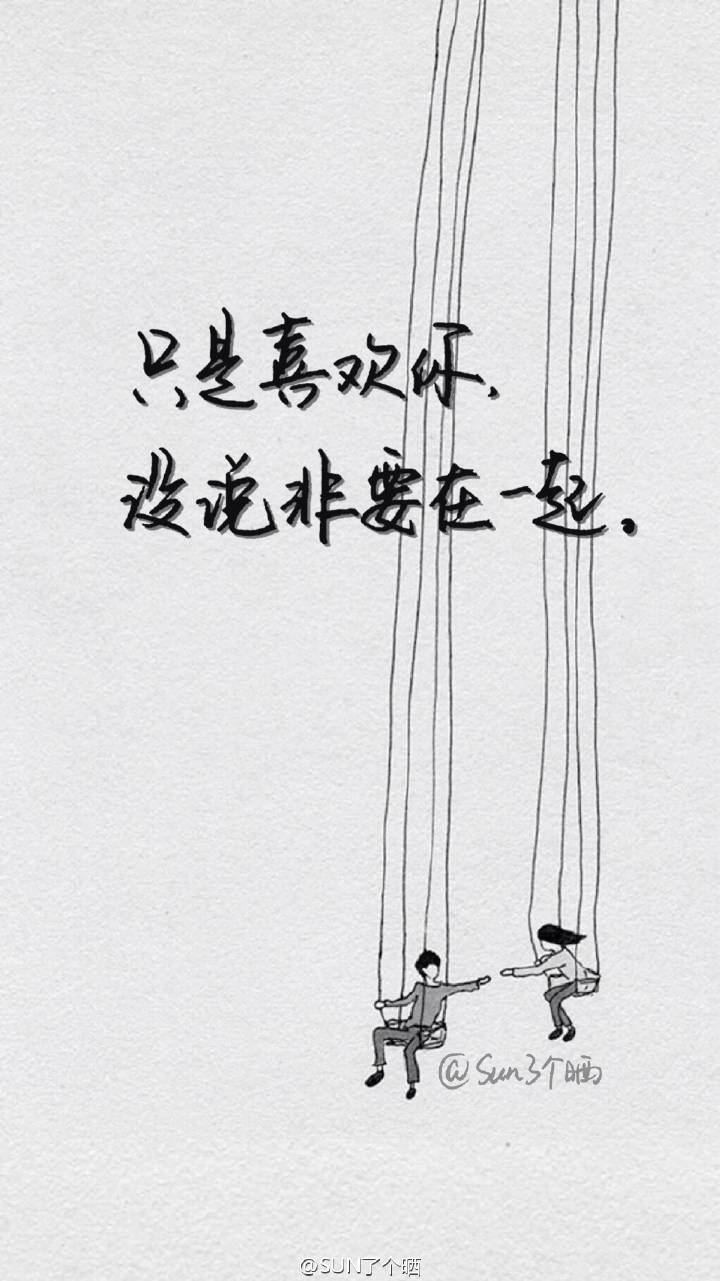 只是喜欢你,
没说非要在一起。
@Sun了个晒
@SUN了个晒